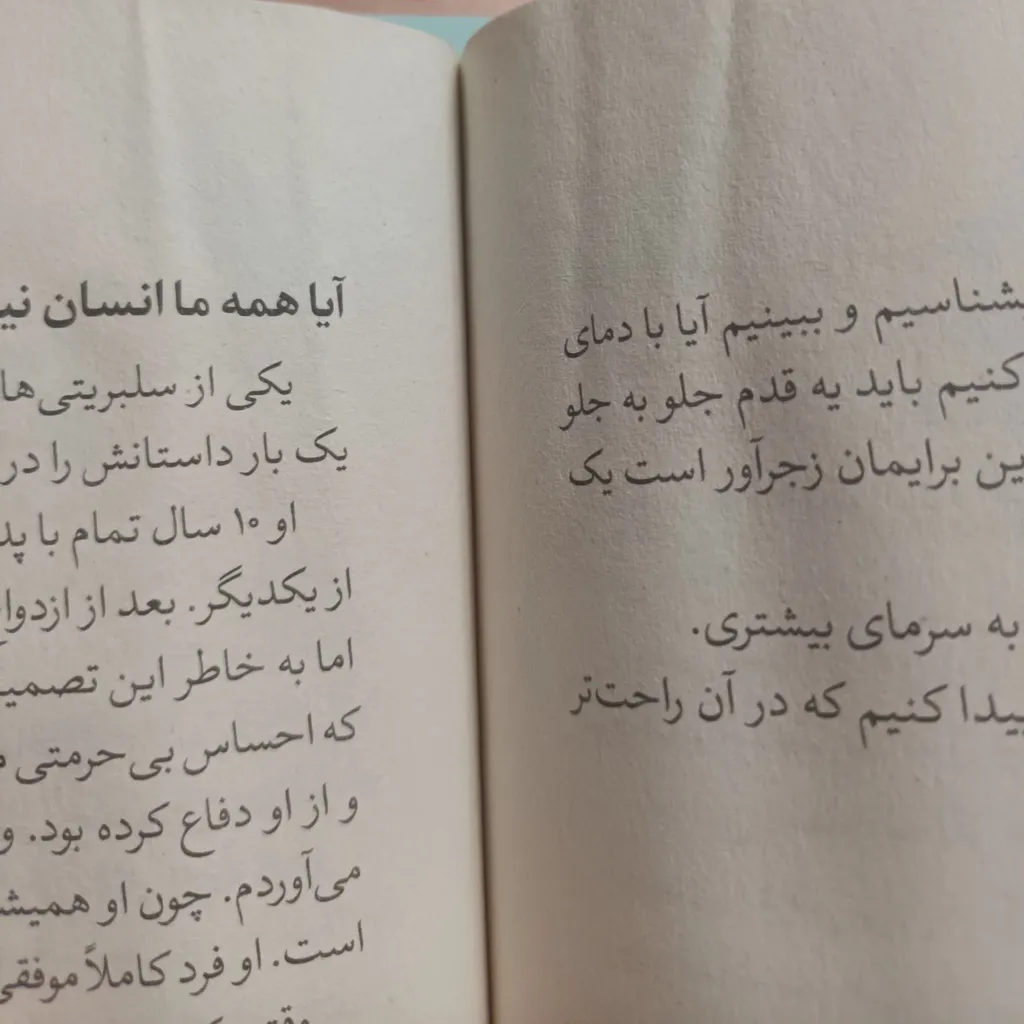 شناسیم و ببینیم آیا با دمای
کنیم باید یه قدم جلو به جلو
ین برایمان زجرآور است یک
به سرمای بیشتری.
یدا کنیم که در آن راحت‌تر
آیا همه ما انسان نی
یکی از سلبریتی‌ها
یک بار داستانش را در
او ۱۰ سال تمام با پد
از یکدیگر. بعد از ازدواج
اما به خاطر این تصمی
که احساس بی‌حرمتی
و از او دفاع کرده بود. و
می‌آوردم. چون او همیش
است. او فرد کاملاً موفقی